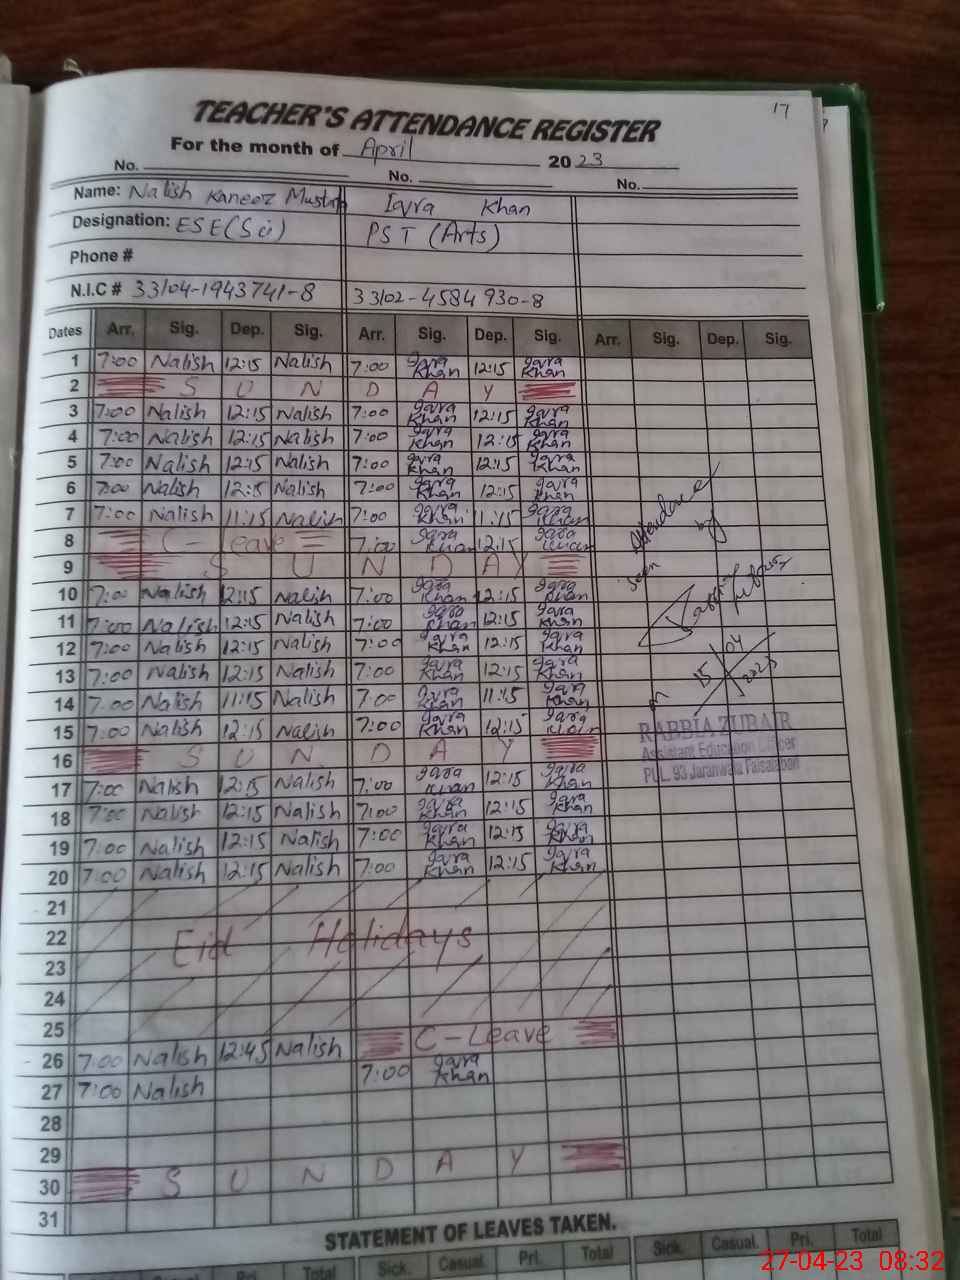 17
TEACHER'S ATTENDANCE REGISTER
For the month of April 2023
No. No. No.
Name: Nalish Kaneez Mustafa Iqra Khan
Designation: ESE(Sci) PST (Arts)
Phone #
N.I.C # 33104-1943741-8 33102-4584930-8
Dates Arr. Sig. Dep. Sig. Arr. Sig. Dep. Sig. Arr. Sig. Dep. Sig.
1 7:00 Nalish 12:15 Nalish 7:00 Iqra Khan 12:15 Iqra Khan
2 S U N D A Y
3 7:00 Nalish 12:15 Nalish 7:00 Iqra Khan 12:15 Iqra Khan
4 7:00 Nalish 12:15 Nalish 7:00 Iqra Khan 12:15 Iqra Khan
5 7:00 Nalish 12:15 Nalish 7:00 Iqra Khan 12:15 Iqra Khan
6 7:00 Nalish 12:15 Nalish 7:00 Iqra Khan 12:15 Iqra Khan
7 7:00 Nalish 11:15 Nalish 7:00 Iqra Khan 11:15 Iqra Khan
8 C-Leave 7:00 Iqra Khan 12:15 Iqra Khan
9 S U N D A Y
10 7:00 Nalish 12:15 Nalish 7:00 Iqra Khan 12:15 Iqra Khan
11 7:00 Nalish 12:15 Nalish 7:00 Iqra Khan 12:15 Iqra Khan
12 7:00 Nalish 12:15 Nalish 7:00 Iqra Khan 12:15 Iqra Khan
13 7:00 Nalish 12:15 Nalish 7:00 Iqra Khan 12:15 Iqra Khan
14 7:00 Nalish 11:15 Nalish 7:00 Iqra Khan 11:15 Iqra Khan
15 7:00 Nalish 12:15 Nalish 7:00 Iqra Khan 12:15 Iqra Khan
16 S U N D A Y
17 7:00 Nalish 12:15 Nalish 7:00 Iqra Khan 12:15 Iqra Khan
18 7:00 Nalish 12:15 Nalish 7:00 Iqra Khan 12:15 Iqra Khan
19 7:00 Nalish 12:15 Nalish 7:00 Iqra Khan 12:15 Iqra Khan
20 7:00 Nalish 12:15 Nalish 7:00 Iqra Khan 12:15 Iqra Khan
21
22 Eid Holidays
23
24
25
26 7:00 Nalish 12:45 Nalish C-Leave
27 7:00 Nalish 7:00 Iqra Khan
28
29
30 S U N D A Y
31
Attendance
seen by
on 15/04/2023
RABBIA ZUBAIR
Assistant Education Officer
PUL. 93 Jaranwala Faisalabad
STATEMENT OF LEAVES TAKEN.
Casual Pri. Total Sick. Casual. Pri. Total Sick. Casual. Pri. Total
27-04-23 08:32